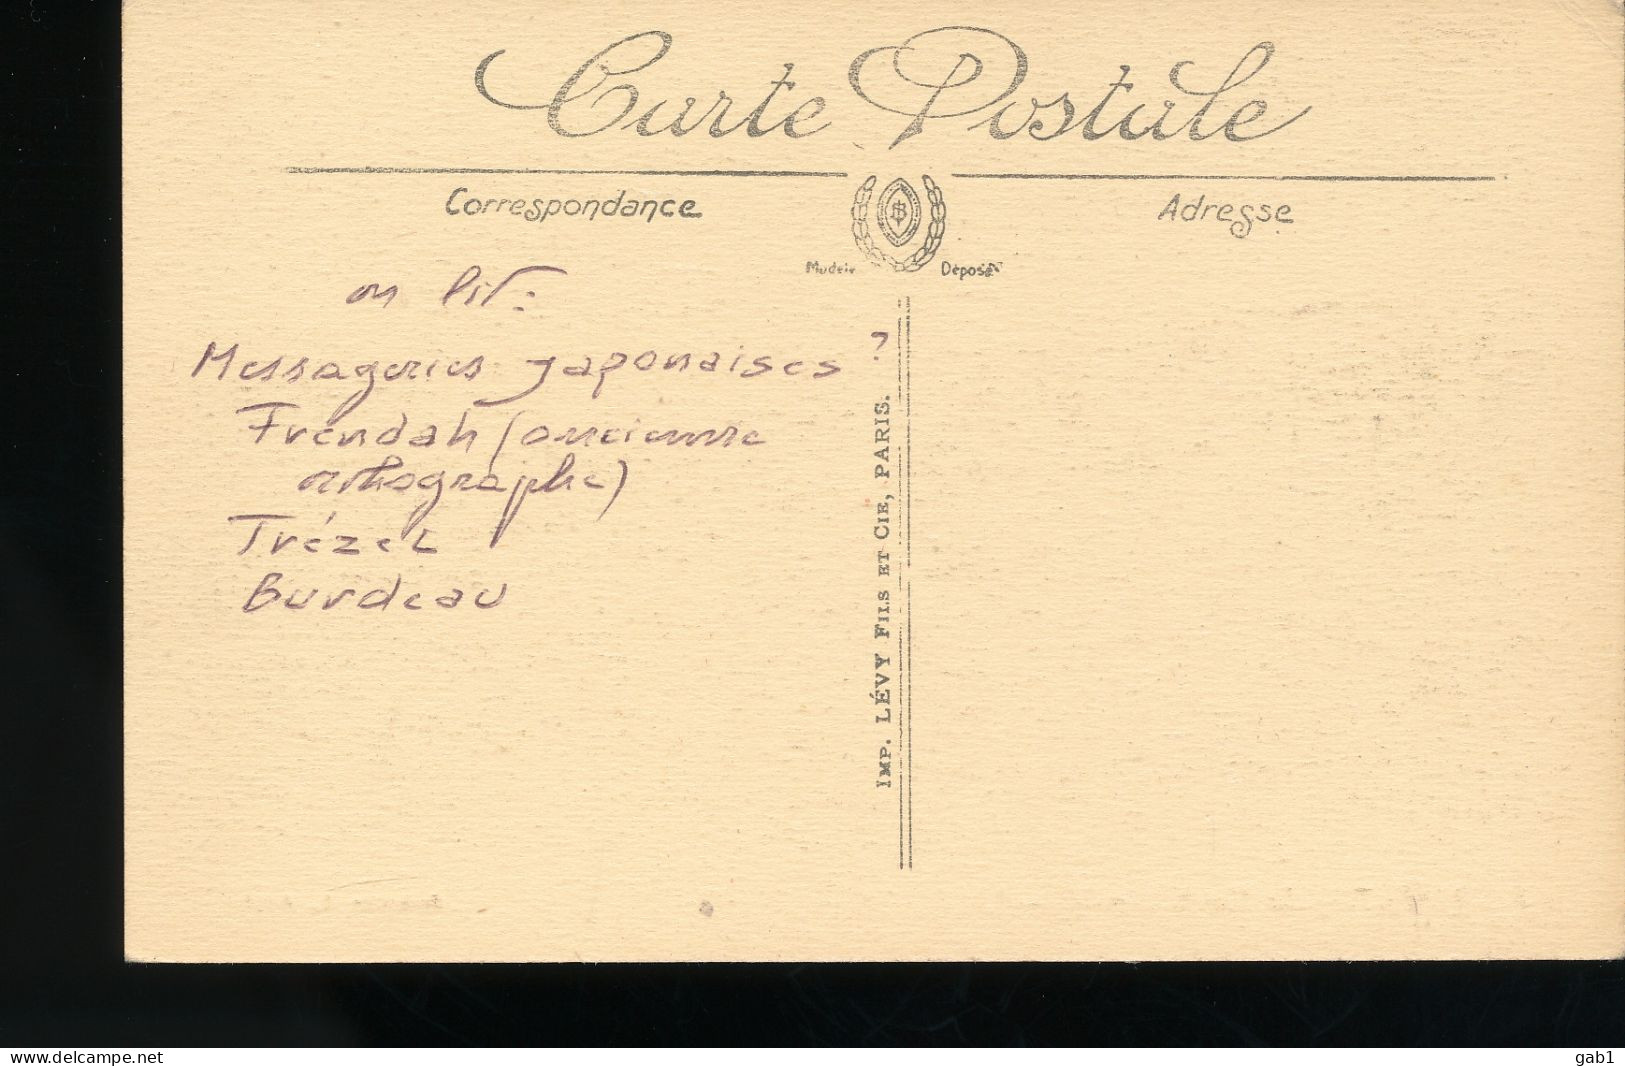 Carte Postale
Correspondance
Adresse
Modèle Déposé
on lit :
Messageries japonaises ?
Frendah (ancienne
orthographe)
Trézel
Burdeau
IMP. LÉVY FILS ET CIE, PARIS.
www.delcampe.net
gab1